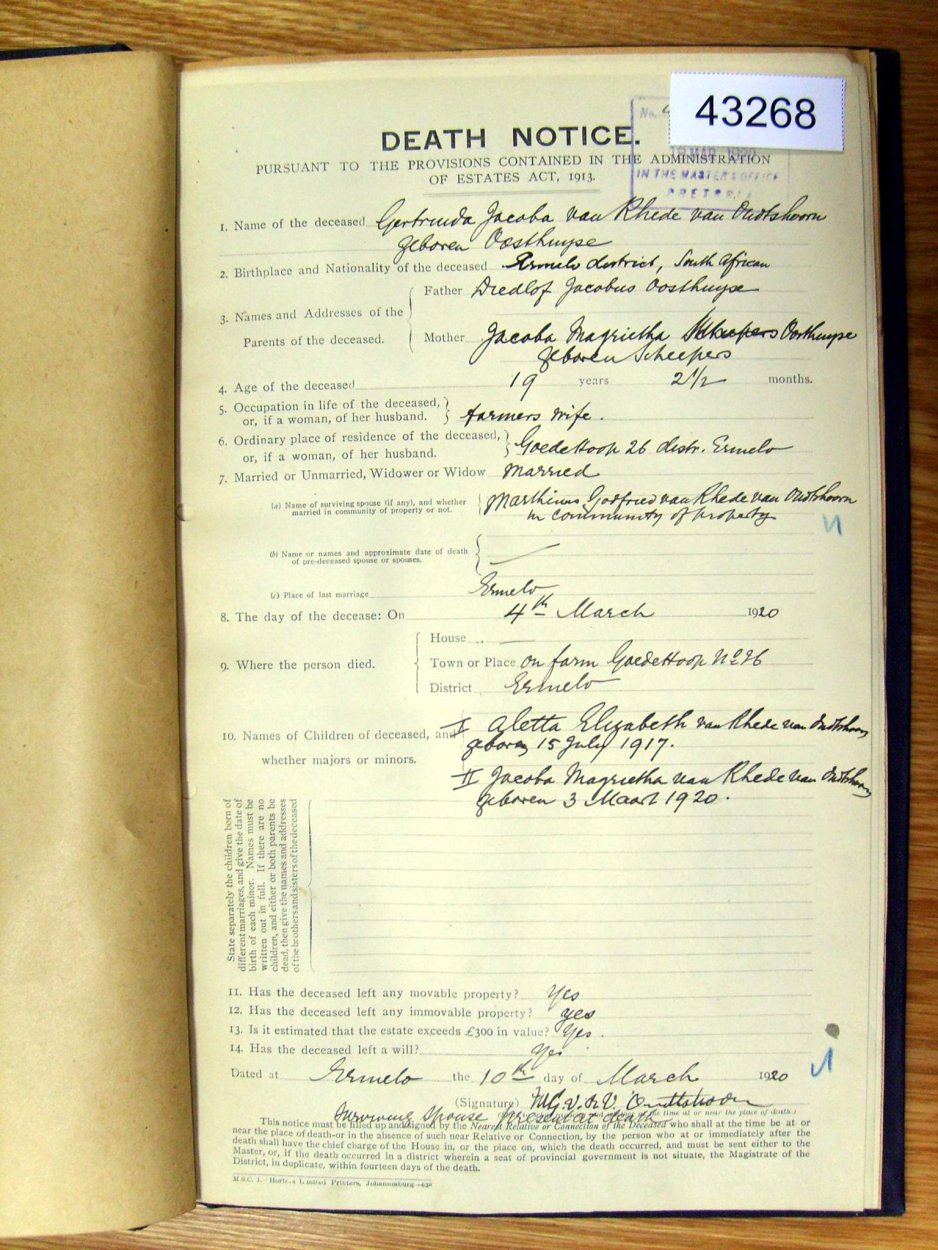 43268
No.
18 MAR 1920
IN THE MASTER'S OFFICE
PRETORIA
DEATH NOTICE.
PURSUANT TO THE PROVISIONS CONTAINED IN THE ADMINISTRATION
OF ESTATES ACT, 1913.
1. Name of the deceased Gertruida Jacoba van Rhede van Oudtshoorn
geboren Oosthuyse
2. Birthplace and Nationality of the deceased Ermelo district, South African
3. Names and Addresses of the Parents of the deceased.
Father Diedlof Jacobus Oosthuyse
Mother Jacoba Magrietha Scheepers Oosthuyse
geboren Scheepers
4. Age of the deceased 19 years 2 1/2 months.
5. Occupation in life of the deceased,
or, if a woman, of her husband. farmers wife.
6. Ordinary place of residence of the deceased,
or, if a woman, of her husband. Goedehoop 26 distr. Ermelo
7. Married or Unmarried, Widower or Widow Married
(a) Name of surviving spouse (if any), and whether
married in community of property or not.
Marthinus Godfried van Rhede van Oudtshoorn
in community of property
(b) Name or names and approximate date of death
of pre-deceased spouse or spouses.
(c) Place of last marriage Ermelo
8. The day of the decease: On 4th March 1920
9. Where the person died.
House
Town or Place on farm Goedehoop No 26
District Ermelo
10. Names of Children of deceased, and
whether majors or minors.
I Aletta Elizabeth van Rhede van Oudtshoorn
geboren 15 July 1917.
II Jacoba Magrietha van Rhede van Oudtshoorn
geboren 3 Maart 1920.
State separately the children born of
different marriages, and give the date of
birth of each minor. Names must be
written out in full. If there are no
children, and either or both parents be
dead, then give the names and addresses
of the brothers and sisters of the deceased
11. Has the deceased left any movable property? Yes
12. Has the deceased left any immovable property? yes
13. Is it estimated that the estate exceeds £300 in value? Yes.
14. Has the deceased left a will? Yes
Dated at Ermelo the 10th day of March 1920
(Signature) M.G.v.R.v. Oudtshoorn
Surviving spouse present at death
This notice must be filled up and signed by the Nearest Relative or Connection of the Deceased who shall at the time be at or
near the place of death—or in the absence of such near Relative or Connection, by the person who at or immediately after the
death shall have the chief charge of the House in, or the place on, which the death occurred, and must be sent either to the
Master, or, if the death occurred in a district wherein a seat of provincial government is not situate, the Magistrate of the
District, in duplicate, within fourteen days of the death.
M.S.C. 1.—Hortors Limited Printers, Johannesburg